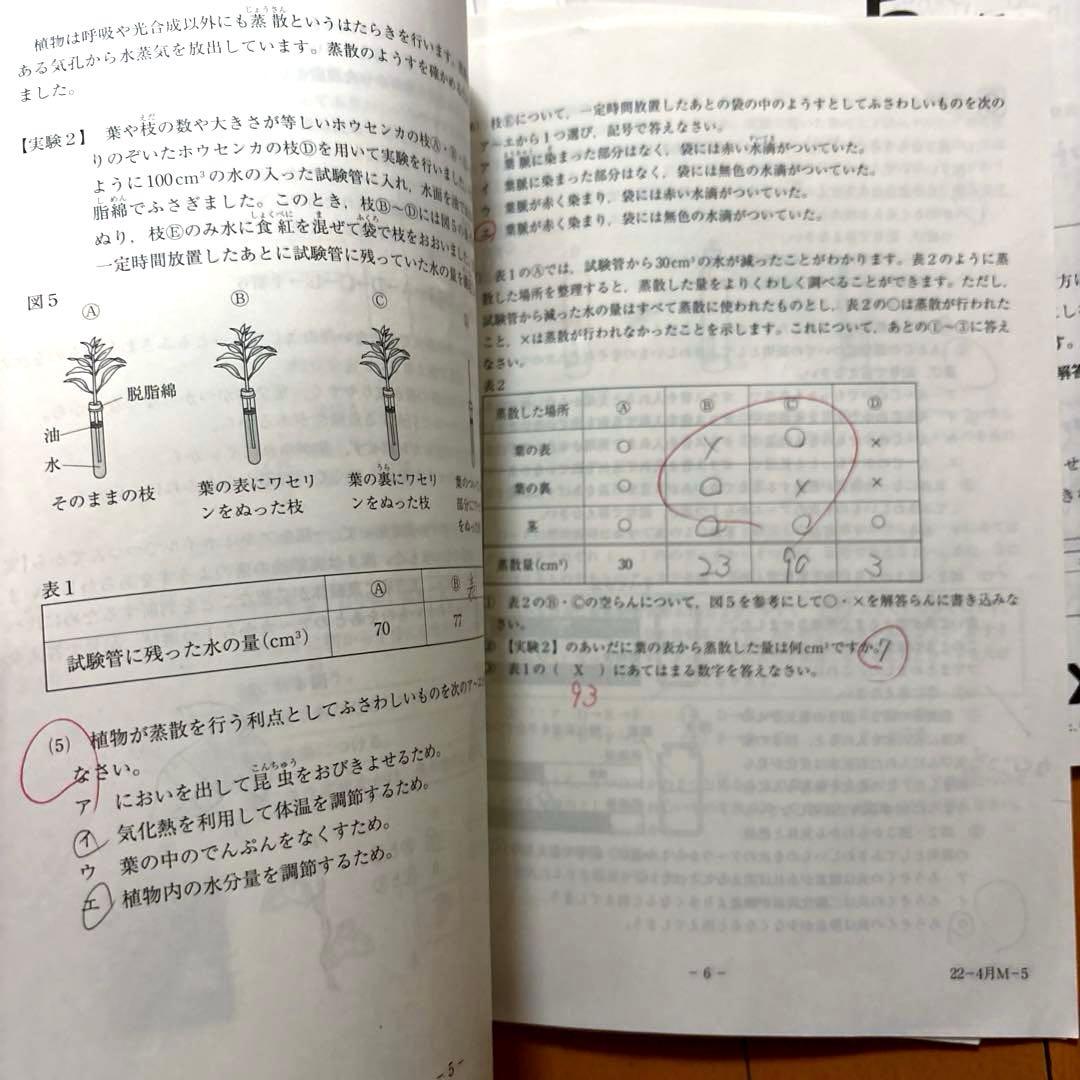 植物は呼吸や光合成以外にも蒸散というはたらきを行います。
ある気孔から水蒸気を放出しています。蒸散のようすを確かめる
ました。
【実験2】 葉や枝の数や大きさが等しいホウセンカの枝Ⓐ・
りのぞいたホウセンカの枝Ⓓを用いて実験を行いました。
ように100cm³の水の入った試験管に入れ、水面を油で
脂綿でふさぎました。このとき、枝Ⓑ~Ⓓには図5の
ぬり、枝Ⓔのみ水に食紅を混ぜて袋で枝をおおいました。
一定時間放置したあとに試験管に残っていた水の量を
図5
Ⓐ Ⓑ Ⓒ
脱脂綿
油
水
そのままの枝
葉の表にワセリ
ンをぬった枝
葉の裏にワセリ
ンをぬった枝
葉のつ
部分に
をぬっ
表1
Ⓐ Ⓑ 表
試験管に残った水の量(cm³) 70 77
(5) 植物が蒸散を行う利点としてふさわしいものを次のア~エ
なさい。
ア においを出して昆虫をおびきよせるため。
イ 気化熱を利用して体温を調節するため。
ウ 葉の中のでんぷんをなくすため。
エ 植物内の水分量を調節するため。
-5-
枝Ⓔについて、一定時間放置したあとの袋の中のようすとしてふさわしいものを次の
ア~エから1つ選び、記号で答えなさい。
ア 葉脈に染まった部分はなく、袋には赤い水滴がついていた。
イ 葉脈に染まった部分はなく、袋には無色の水滴がついていた。
ウ 葉脈が赤く染まり、袋には赤い水滴がついていた。
エ 葉脈が赤く染まり、袋には無色の水滴がついていた。
表1のⒶでは、試験管から30cm³の水が減ったことがわかります。表2のように蒸
散した場所を整理すると、蒸散した量をよりくわしく調べることができます。ただし、
試験管から減った水の量はすべて蒸散に使われたものとし、表2の○は蒸散が行われた
こと、×は蒸散が行われなかったことを示します。これについて、あとの①~③に答え
なさい。
表2
蒸散した場所 Ⓐ Ⓑ Ⓒ Ⓓ
葉の表 ○ × ○ ×
葉の裏 ○ ○ × ×
茎 ○ ○ ○ ○
蒸散量(cm³) 30 23 90 3
① 表2のⒷ・Ⓒの空らんについて、図5を参考にして○・×を解答らんに書き込みな
さい。
② 【実験2】のあいだに葉の表から蒸散した量は何cm³ですか。 7
③ 表1の( X )にあてはまる数字を答えなさい。
93
-6-
22-4月M-5